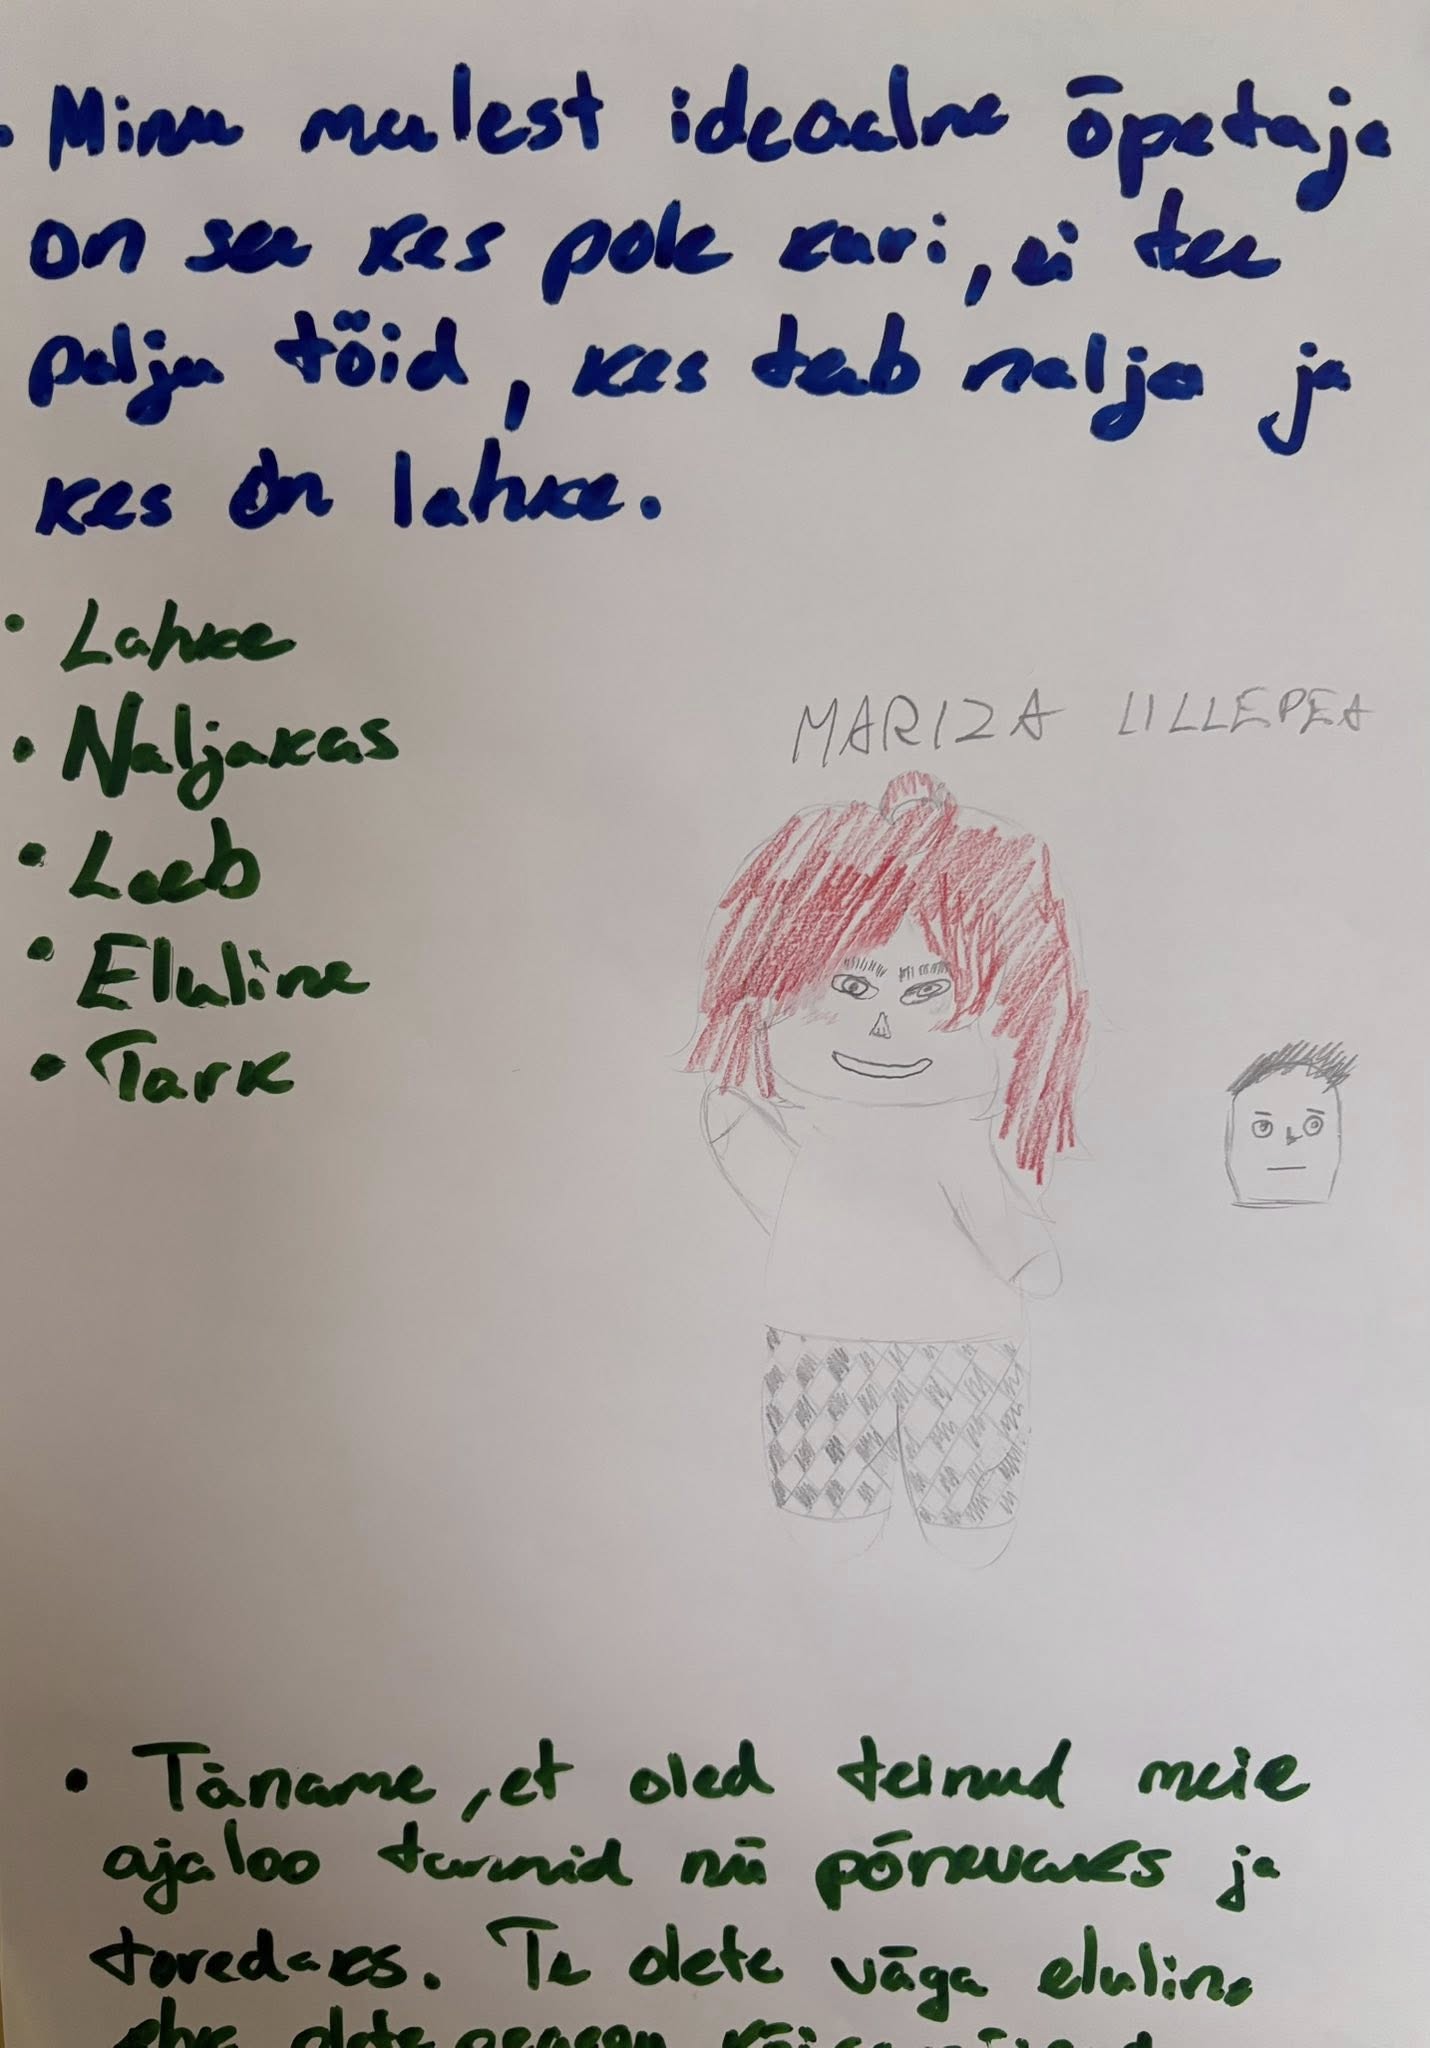 • Minu malest ideaalne õpetaja
on see kes pole kuri, ei tee
palju töid, kes teb nalja ja
kes on lahke.
• Lahke
• Naljakas
• Loeb
• Eluline
• Tark
MARIZA LILLEPEA
• Täname, et oled teinud meie
ajaloo tunnid nii põnevaks ja
toredaks. Te olete väga eluline
ehk olete